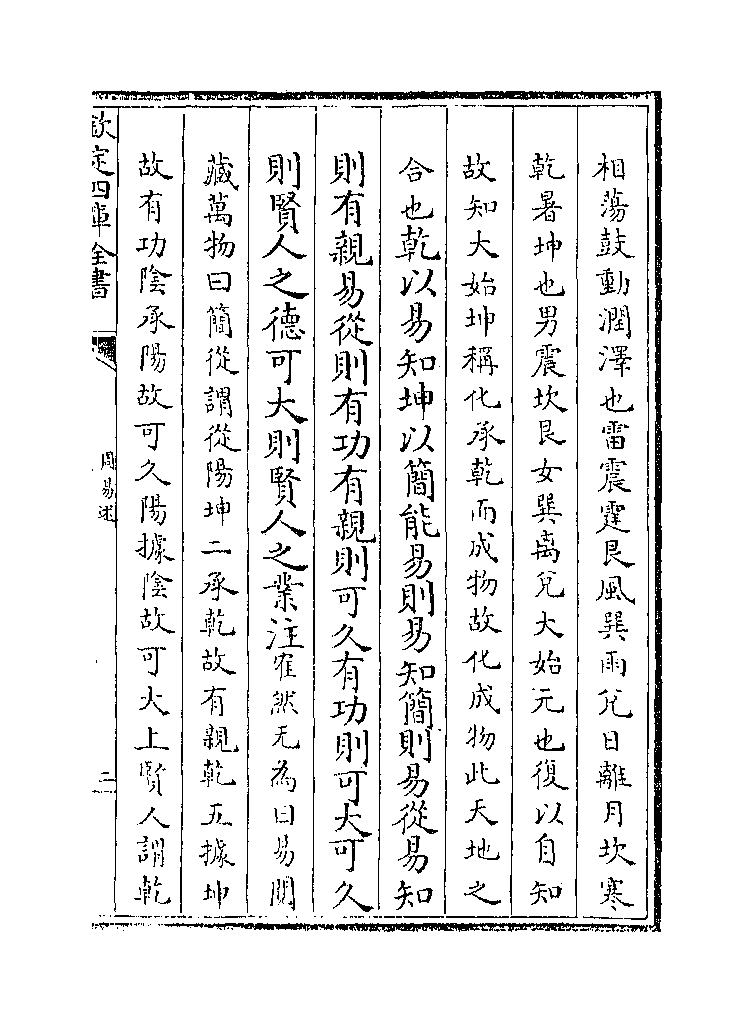 相蕩鼓動潤澤也雷震霆艮風巽雨兌日離月坎寒
乾暑坤也男震坎艮女巽离兌大始元也復以自知
故知大始坤稱化承乾而成物故化成物此天地之
合也乾以易知坤以簡能易則易知簡則易從易知
則有親易從則有功有親則可久有功則可大可久
則賢人之德可大則賢人之業注寉然无為曰易閉
藏萬物曰簡從謂從陽坤二承乾故有親乾五據坤
故有功陰承陽故可久陽據陰故可大上賢人謂乾
欽定四庫全書
周易述
二